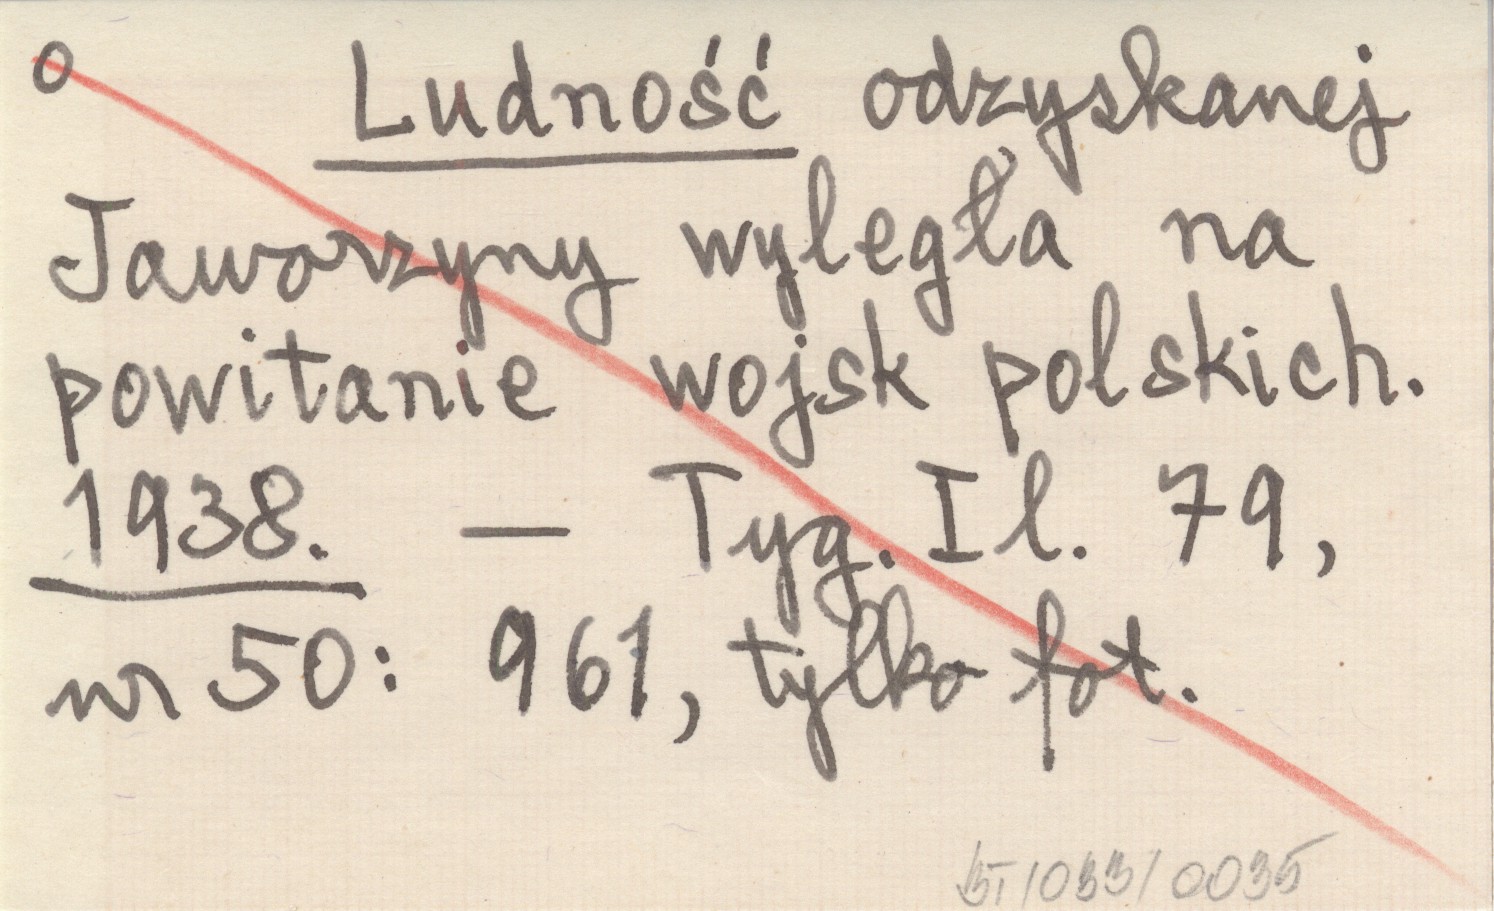 o Ludność odzyskanej
Jaworzyny wyległa na
powitanie wojsk polskich.
1938. — Tyg. Il. 79,
nr 50: 961, tylko fot.
BT/033/0035